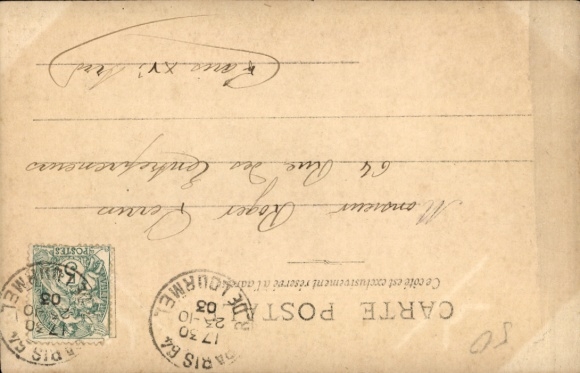 CARTE POSTALE
Ce côté est exclusivement réservé à l'adresse
Monsieur Roger
64 Rue des Entrepreneurs
Paris XVe Arrt
PARIS 64
17 30
23-10
03
R. DE LOURMEL
PARIS 64
17 30
23-10
03
LOURMEL
POSTES
50